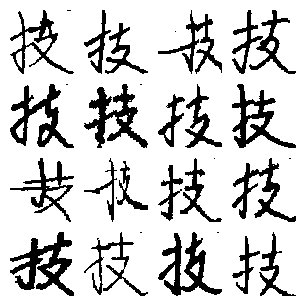 技技技技
技技技技
技技技技
技技技技